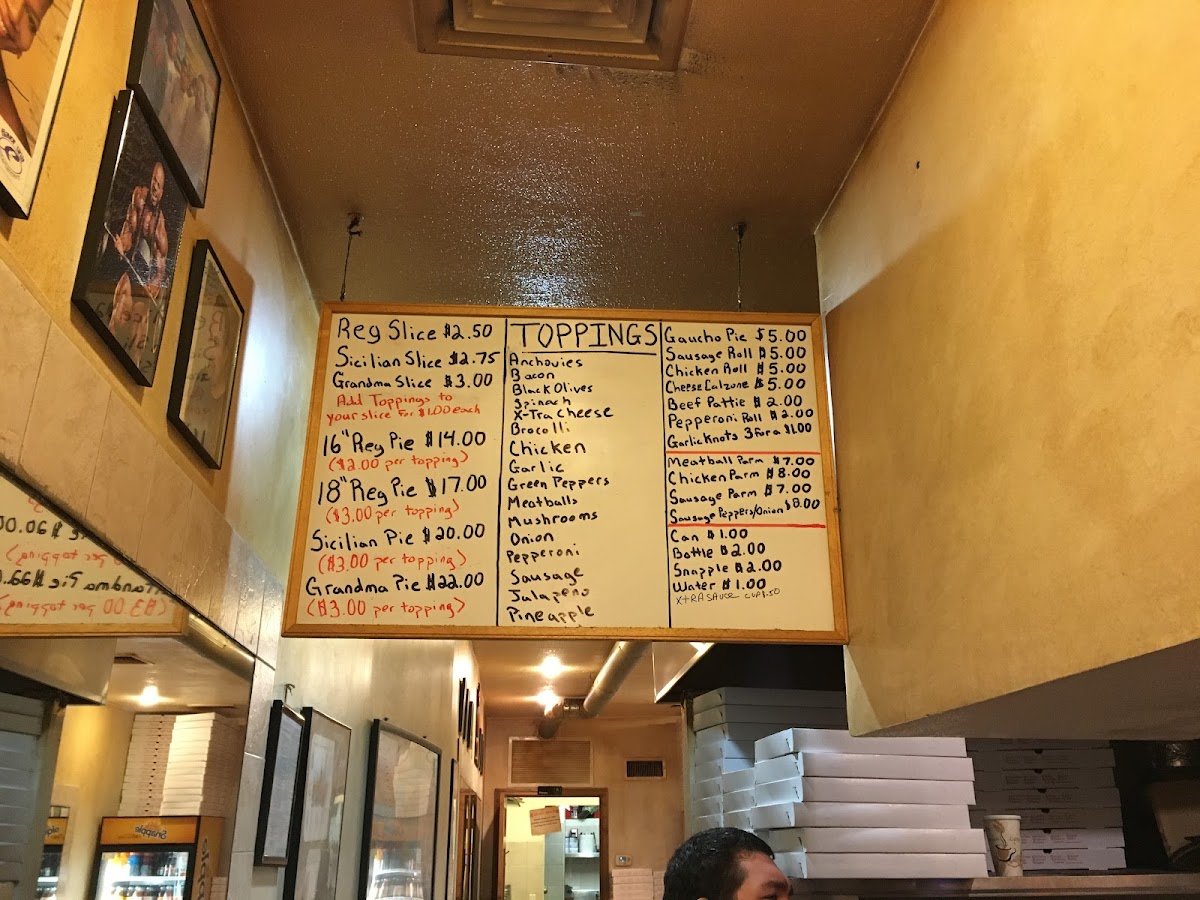 Reg Slice $2.50
Sicilian Slice $2.75
Grandma Slice $3.00
Add Toppings to
your slice for $1.00 each
16" Reg Pie $14.00
($2.00 per topping)
18" Reg Pie $17.00
($3.00 per topping)
Sicilian Pie $20.00
($3.00 per topping)
Grandma Pie $22.00
($3.00 per topping)
TOPPINGS
Anchovies
Bacon
Black Olives
Spinach
X-Tra Cheese
Brocolli
Chicken
Garlic
Green Peppers
Meatballs
Mushrooms
Onion
Pepperoni
Sausage
Jalapeno
Pineapple
Gaucho Pie $5.00
Sausage Roll $5.00
Chicken Roll $5.00
Cheese Calzone $5.00
Beef Pattie $2.00
Pepperoni Roll $2.00
Garlic Knots 3 for a $1.00
Meatball Parm $7.00
Chicken Parm $8.00
Sausage Parm $7.00
Sausage Peppers/Onion $8.00
Can $1.00
Bottle $2.00
Snapple $2.00
Water $1.00
XTRA SAUCE CUP $.50
Snapple